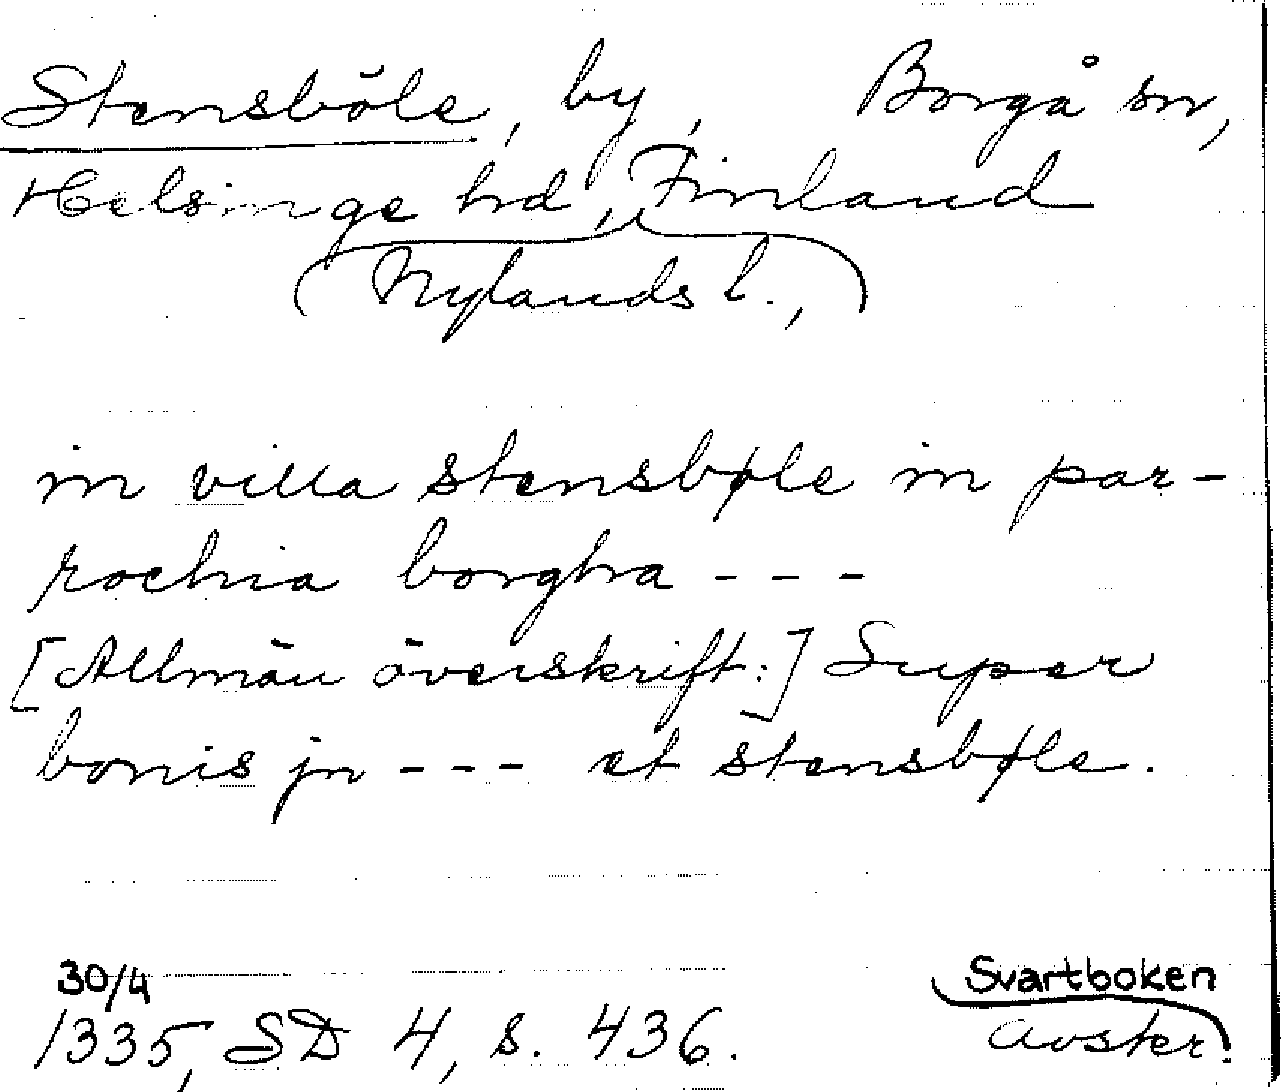 Stensböle, by, Borgå sn,
Helsinge hd, Finland
(Nylands l.,)
in villa stensbøle in par-
rochia borgha - - -
[Allmän överskrift:] Super
bonis jn - - - et stensbøle.
30/4 Svartboken
1335, SD 4, s. 436. avskr.